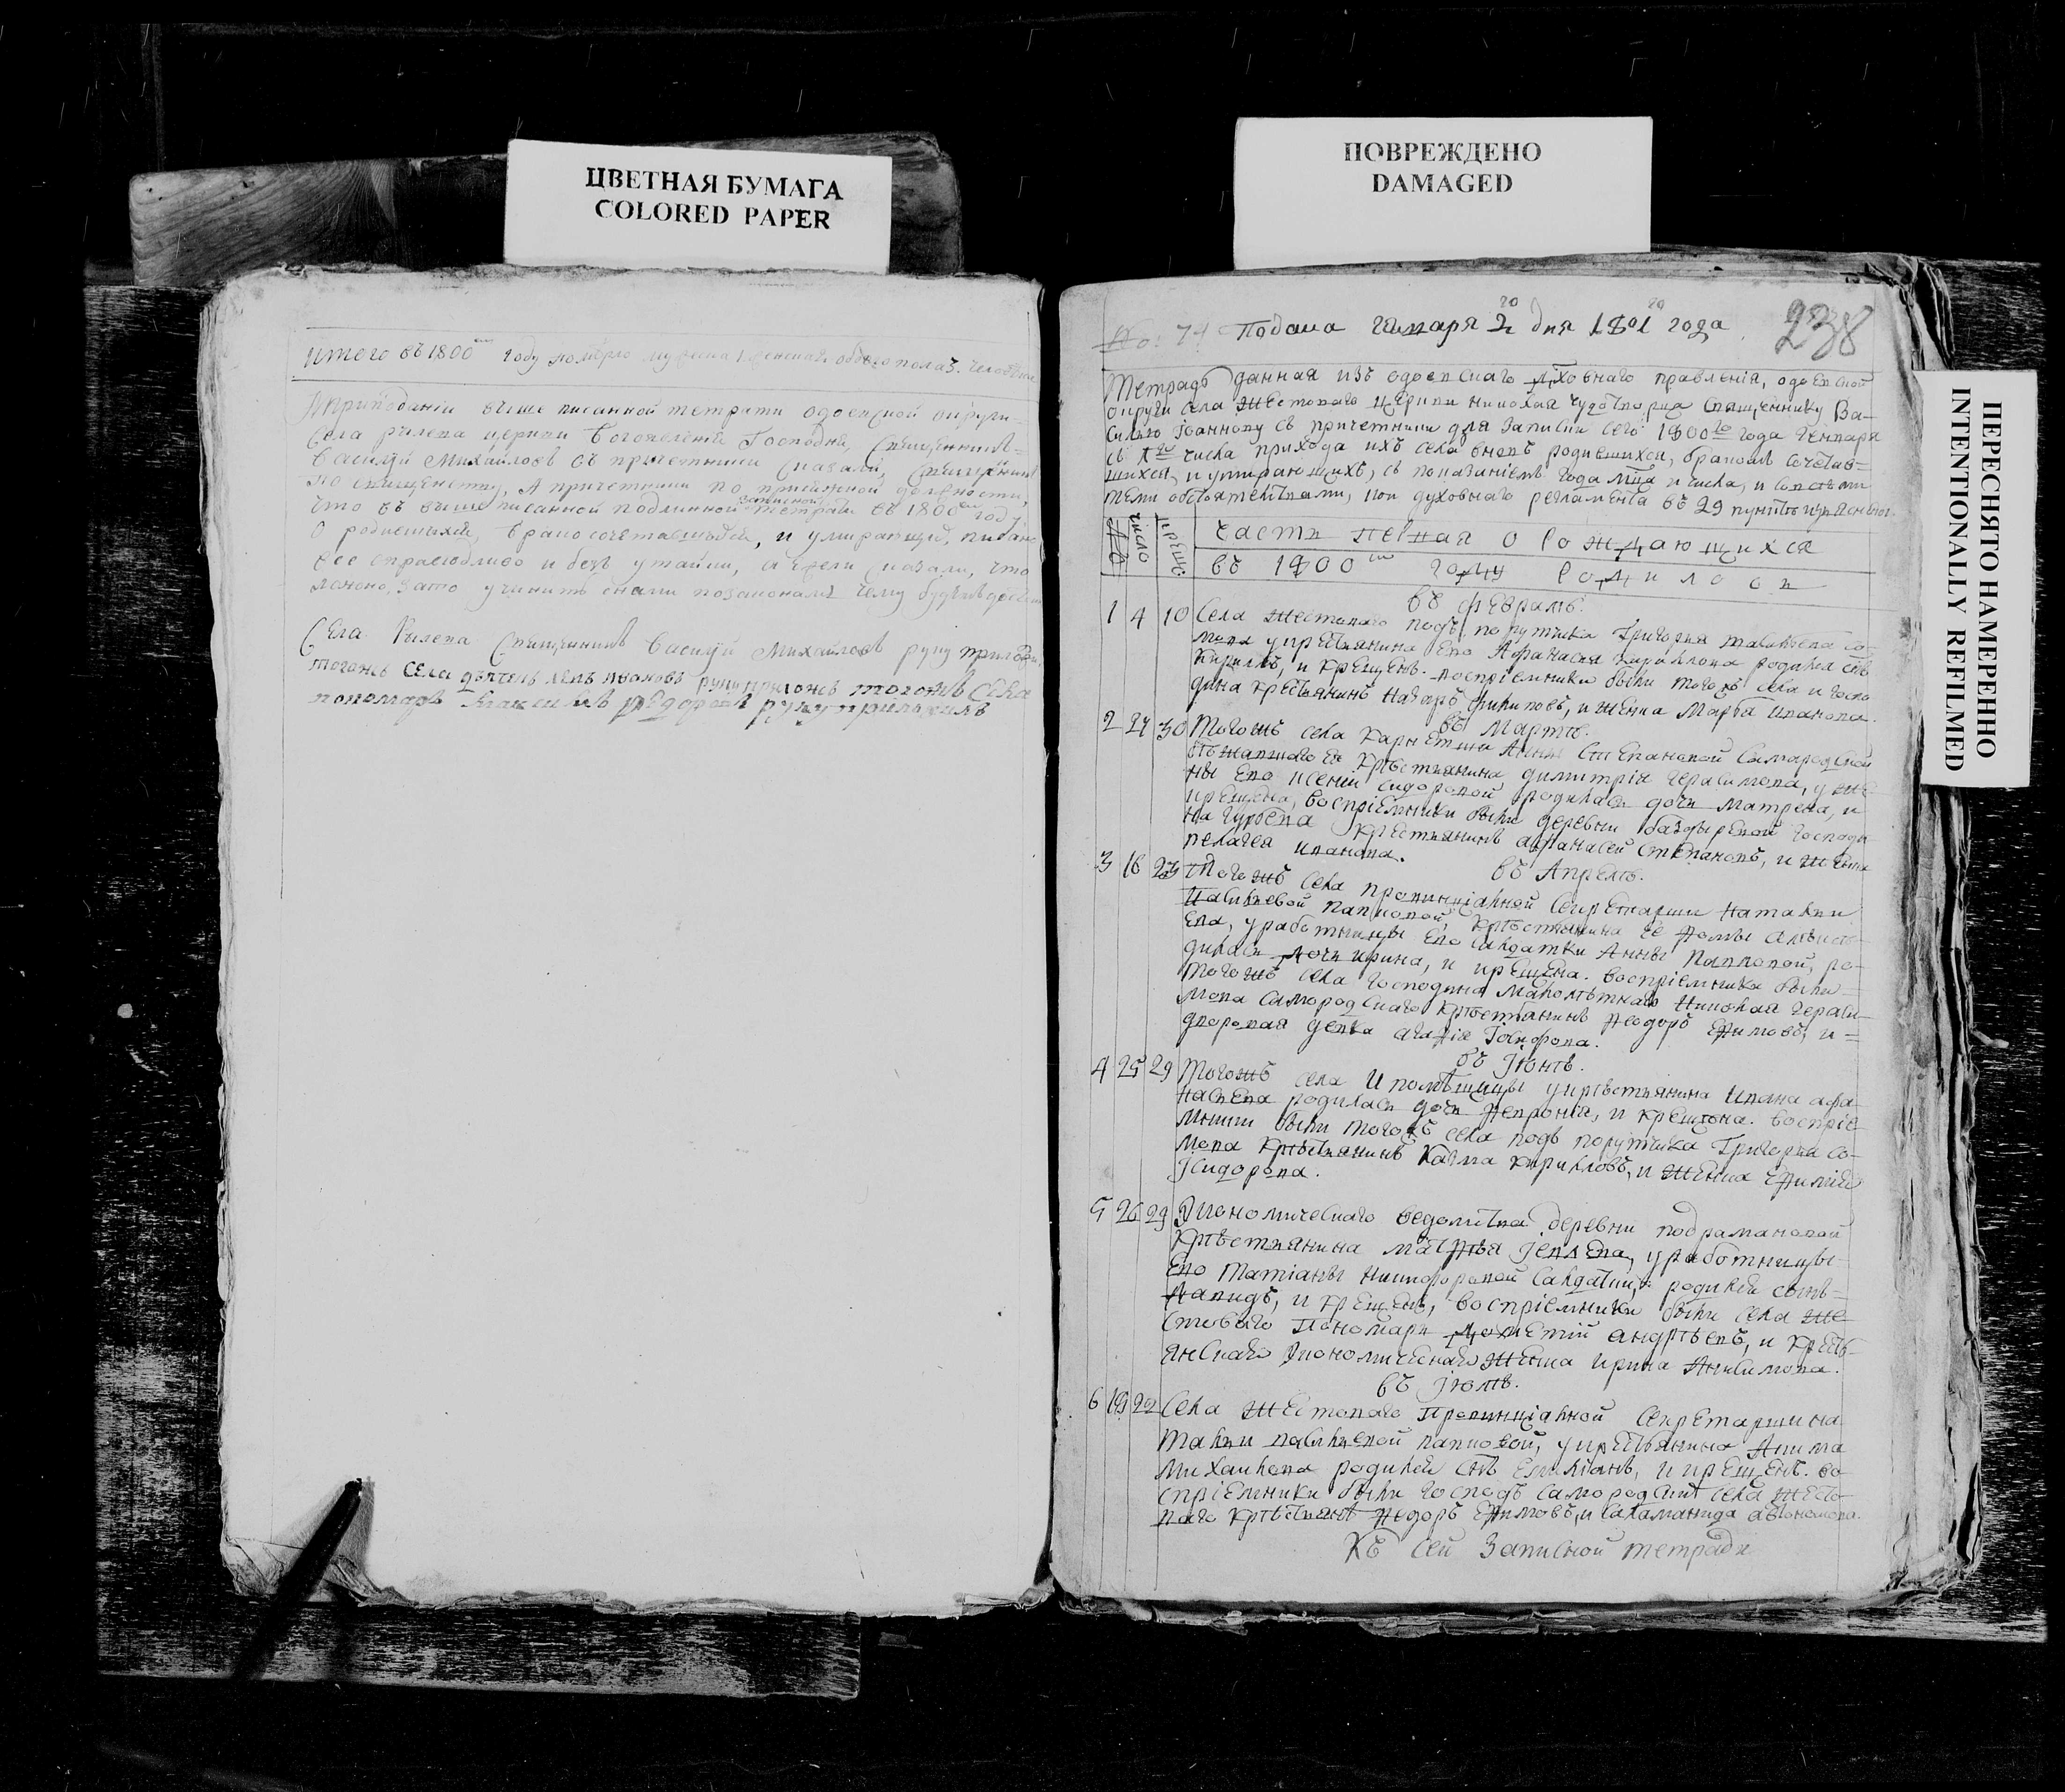 ЦВЕТНАЯ БУМАГА
COLORED PAPER
ПОВРЕЖДЕНО
DAMAGED
ПЕРЕСНЯТО НАМЕРЕННО
INTENTIONALLY REFILMED
итого въ 1800 году померло
При подании выше писанной тетрати одоевской округи
Села рылева церкви Богоявления Господня, священникъ
василий Михайловъ съ причетники сказали, священникъ
по священству, А причетники по присяжной должности,
что въ выше писанной подлинной записной тетрати въ 1800 году
О родившихся, бракосочетавшихся, и умирающих, писано
все справедливо и безъ утайки, а ежели сказали, что
ложно, за то учинить снами по законамъ чему будемъ
Села Рылева Священникъ василий Михайловъ руку приложи
тогожъ села дьячекъ ивановъ руку приложъ тогожъ села
пономарь федоровъ руку приложилъ
No: 74 Подана генваря 20 дня 1801 года
238
Тетрадь данная изъ одоевскаго духовнаго правления, одоевской
округи села Жестоваго церкви николая чудотворца священнику Ва-
силью Iоаннову съ причетники для записки сего 1800 года Генваря
съ 1 числа прихода ихъ села вновь родившихся, бракомъ сочетав-
шихся, и умирающихъ, съ показаниемъ года мца и числа, и со всеми
теми обстоятельствами, кои духовнаго регламента въ 29 пункте изъяснены
No
число
крещ:
часть первая о рождающихся
въ 1800 году родилось
въ феврале.
1 4 10 Села Жестоваго подъ порутчика Григорья со-
мова у крестьянина ево Афанасья кирилова родился сынъ
Кирилъ, и крещенъ. восприемники были тогожъ села и госпо
дина крестьянинъ Назаръ филиповъ, и женка Марфа иванова.
въ Марте.
2 27 30 Тогожъ села Анны Степановой Самородской
крестьянина димитрия герасимова, у же
ны ево ксении сидоровой родилась дочь матрена, и
крещена, восприемники были деревни господи
на гурьева крестьянинъ афанасей степановъ, и женка
пелагея иванова.
въ Апреле.
3 16 23 Тогожъ села провинциалной секретарши натальи
Васильевой папковой, крестьянина ее
ева, у работницы ево салдатки Анны Павловой, ро-
дилась дочь ирина, и крещена. восприемники были
тогожъ села господина малолетнаго Николая гераси-
мова самородскаго крестьянинъ Федоръ Ефимовъ, и =
дворовая девка агафия
въ Iюне.
4 25 29 Тогожъ села И помещицы у крестьянина ивана афа
насьева родилась дочь Феврония, и крещена. восприе
мники были тогожъ села подъ порутчика Григорья со-
мова крестьянинъ Козма кириловъ, и женка Ефимия
Iсидорова.
5 26 29 Экономическаго ведомства деревни подрамановой
крестьянина матфея у работницы
ево Татианы Никифоровой салдатки, родился сынъ
Давидъ, и крещенъ, восприемники были села Же
стоваго пономарь андреевъ, и кресть
янскаго экономическаго женка ирина Анисимова.
въ Iюле.
6 19 22 Села Жестоваго провинциалной секретарши на
тальи васильевой папковой, у крестьянина Акима
Михаилова родился снъ Емилианъ, и крещенъ. во
сприемники были господъ самородских села Жесто
ваго крестьянинъ Федоръ Ефимовъ, и Саламанида
Къ сей записной тетради